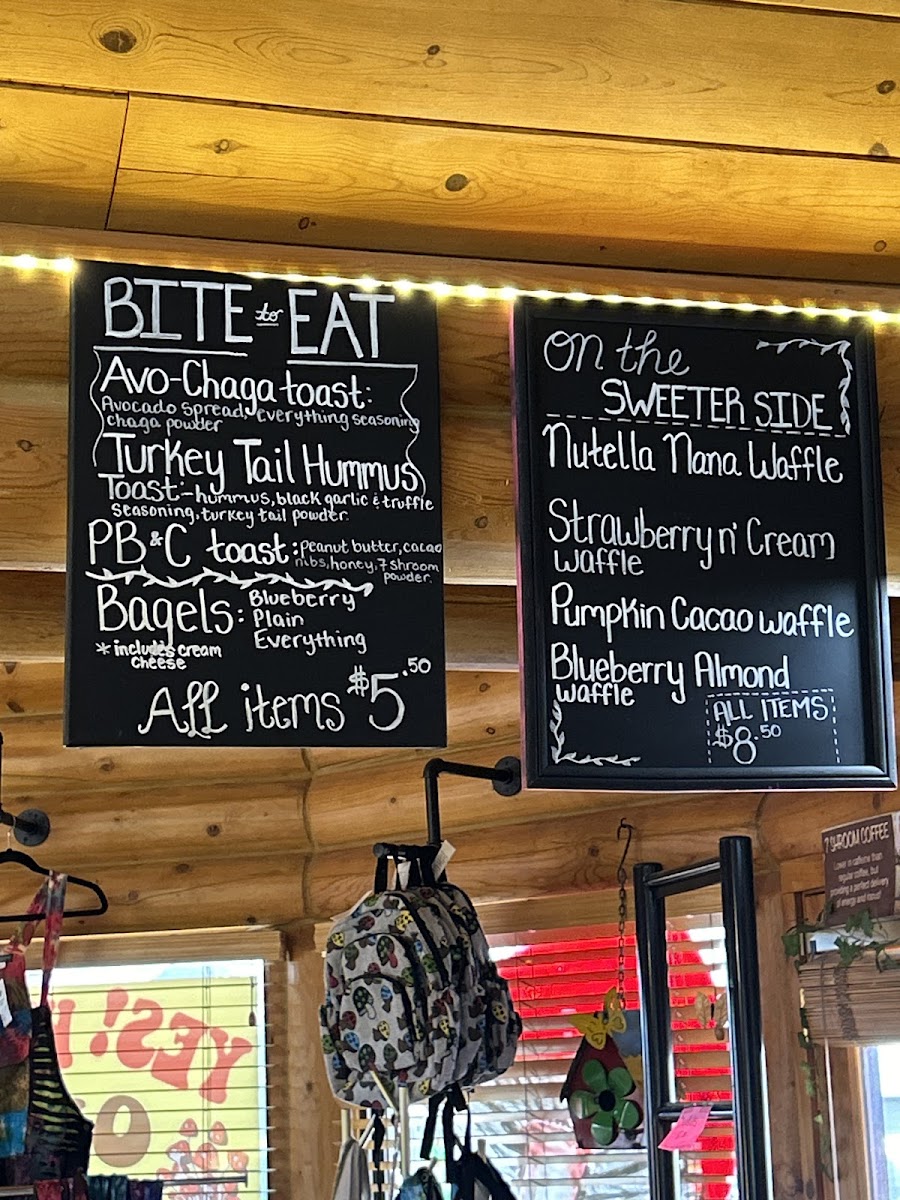 BITE to EAT
Avo-Chaga toast:
Avocado spread, everything seasoning
chaga powder
Turkey Tail Hummus
Toast:-hummus, black garlic & truffle
seasoning, turkey tail powder.
PB&C toast: peanut butter, cacao
nibs, honey, 7 shroom
powder.
Bagels: Blueberry
Plain
Everything
* includes cream
cheese
All items $5.50
on the
SWEETER SIDE
Nutella Nana Waffle
Strawberry n' Cream
waffle
Pumpkin Cacao waffle
Blueberry Almond
waffle
ALL ITEMS
$8.50
7 SHROOM COFFEE
Lower in caffeine than
regular coffee, but
providing a perfect delivery
of energy and focus!
YES!